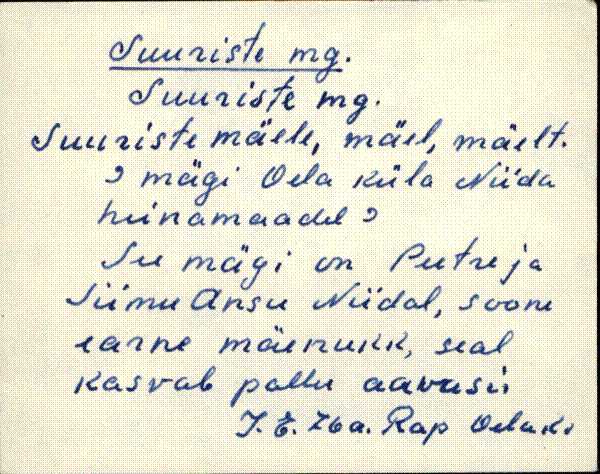 Suuriste mg.
Suuriste mg.
Suuriste mäele, mäel, mäelt.
? mägi Oela küla Niida
heinamaadel ?
See mägi on Peetre ja
Siimu Ansu Niidal, soone
earne mäenukk, seal
kasvab pallu aavusi.
J. E. 76a. Rap Oela k.